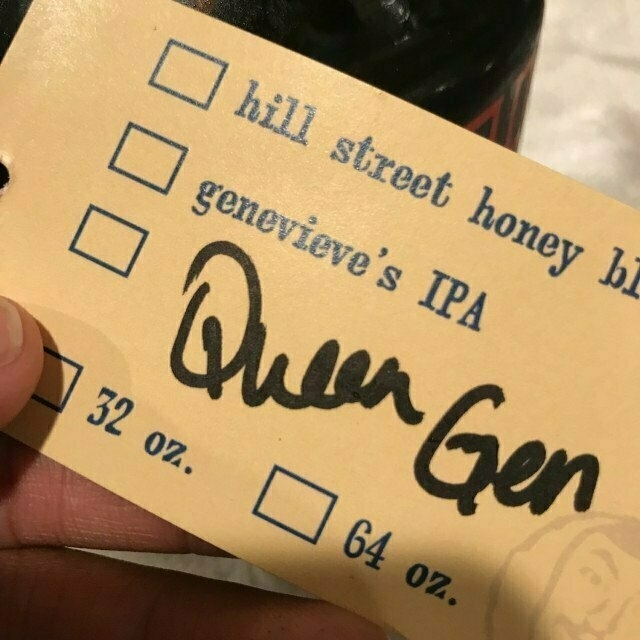 hill street honey bl
genevieve's IPA
Queen Gen
32 oz.
64 oz.